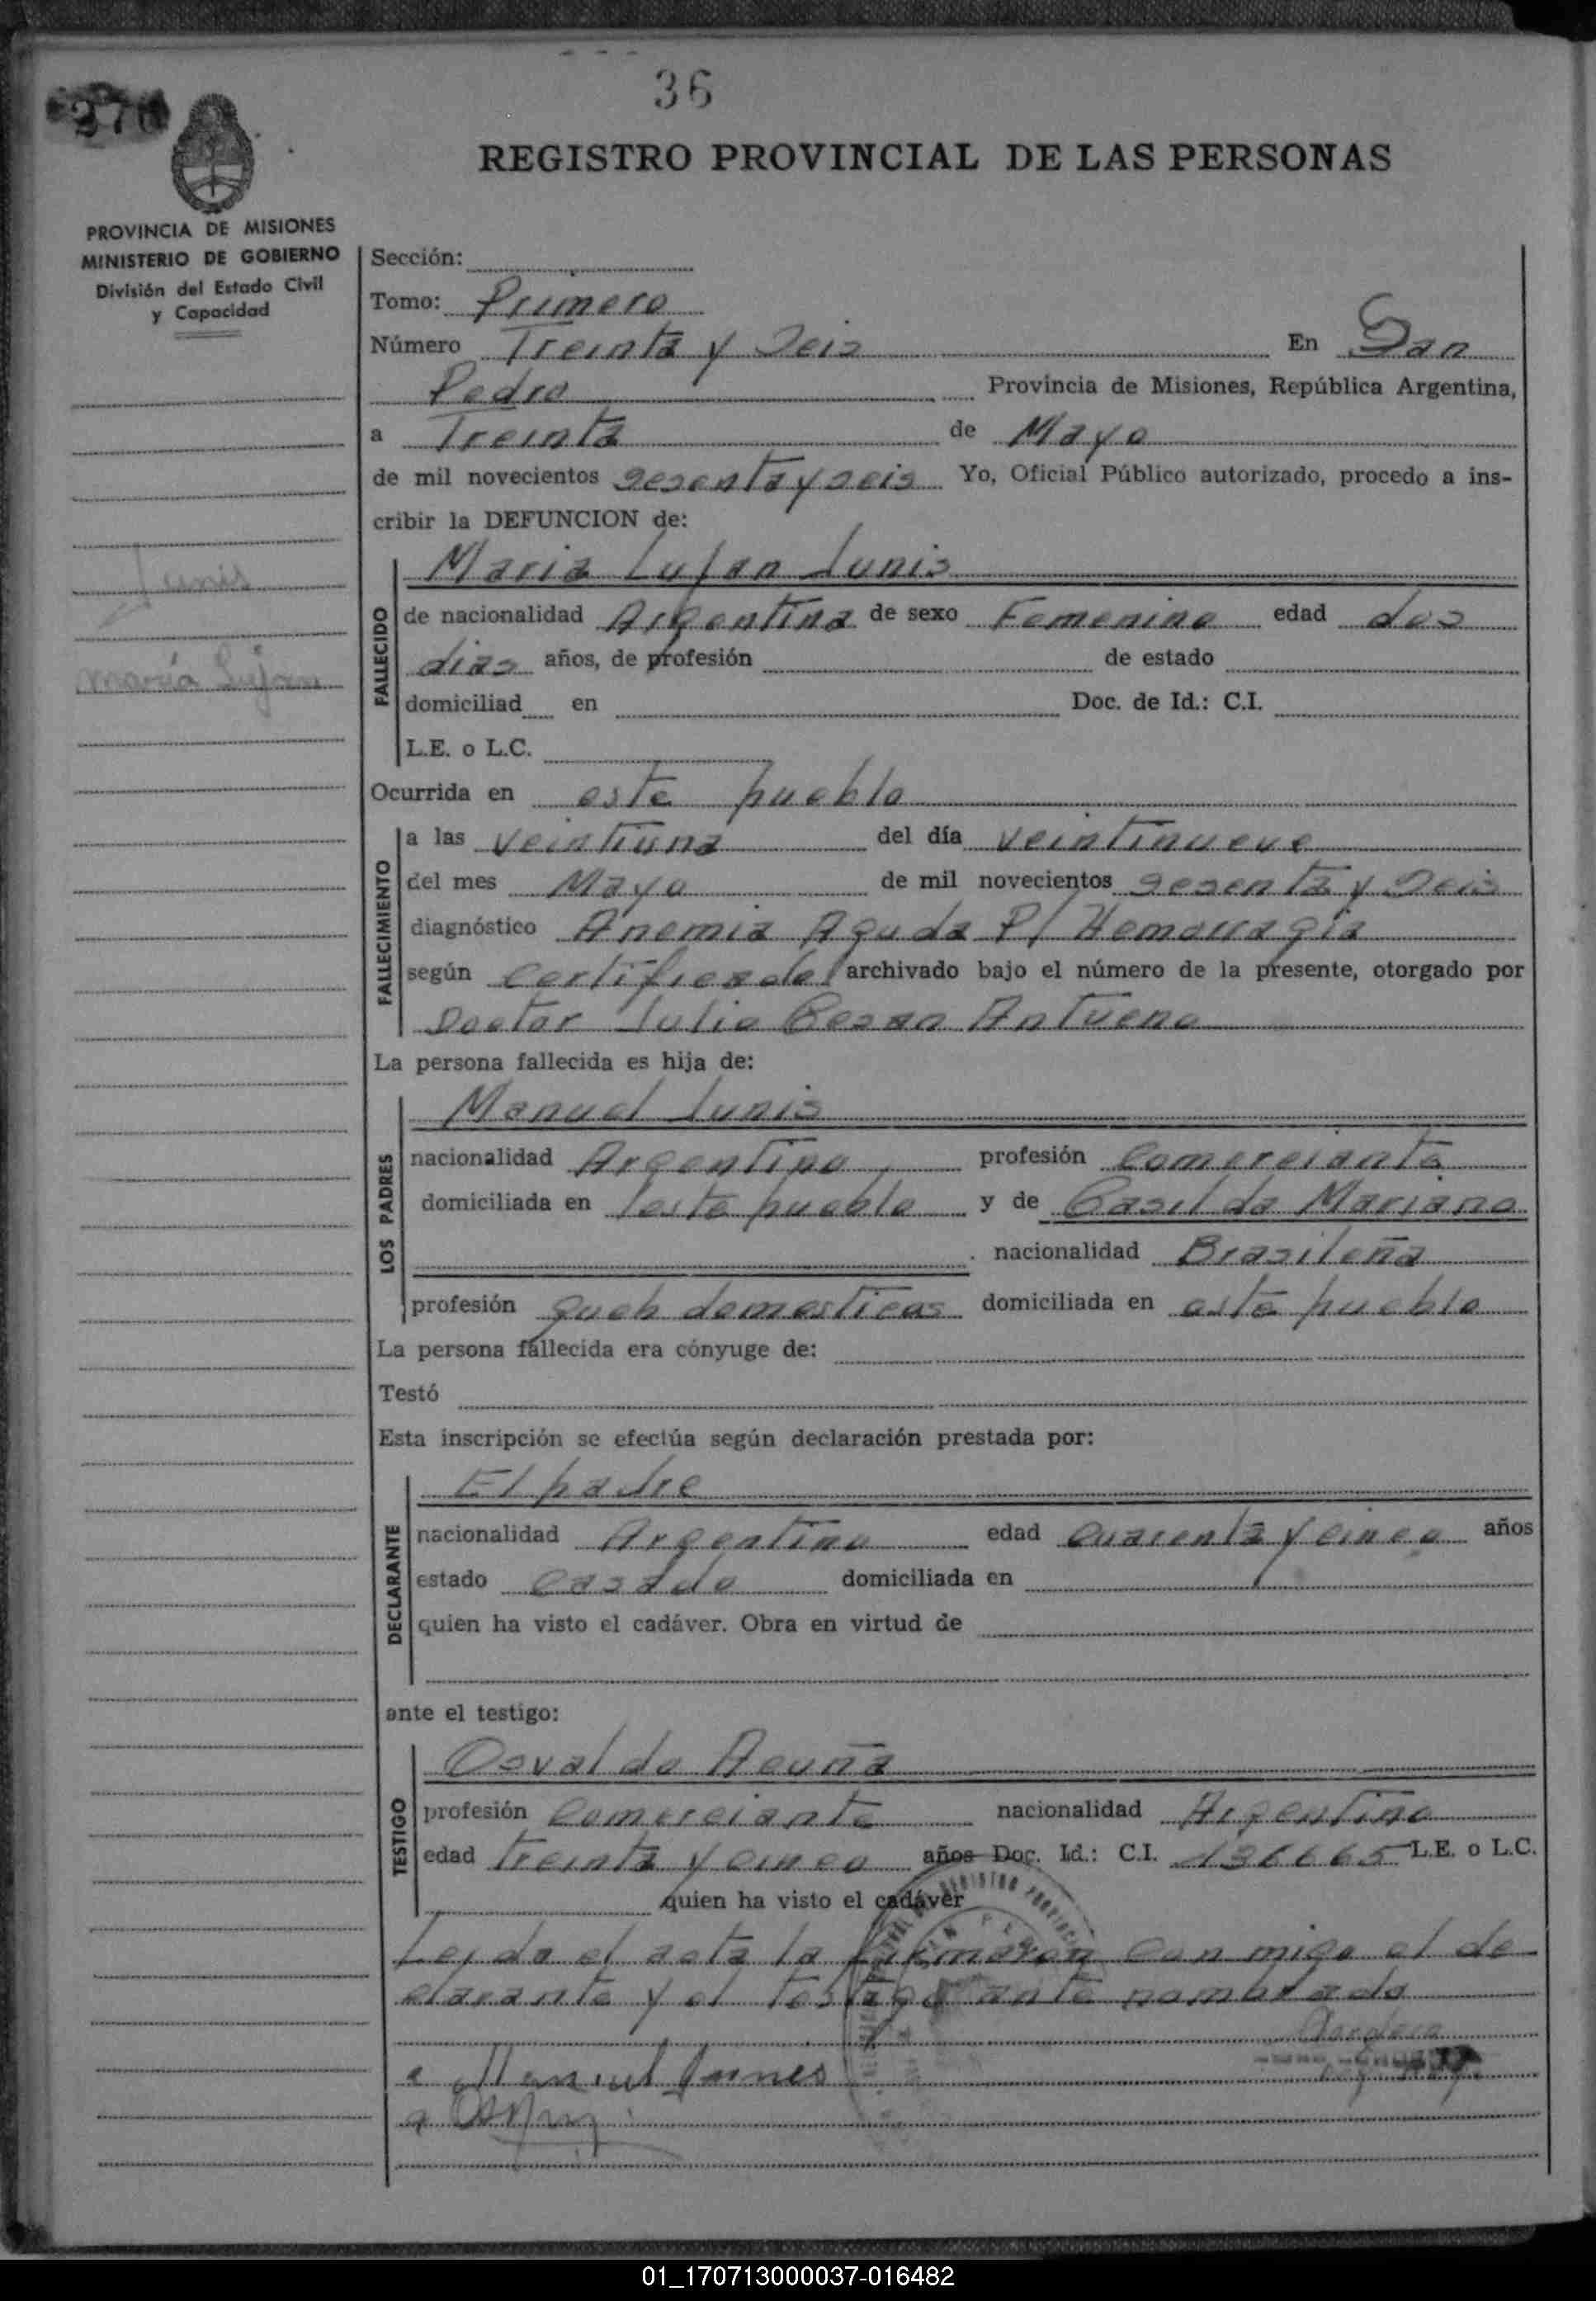 36
270
REGISTRO PROVINCIAL DE LAS PERSONAS
PROVINCIA DE MISIONES
MINISTERIO DE GOBIERNO
División del Estado Civil
y Capacidad
Sección:
Tomo: Primero
Número Treinta y Seis En San
Pedro Provincia de Misiones, República Argentina,
a Treinta de Mayo
de mil novecientos sesenta y seis Yo, Oficial Público autorizado, procedo a ins-
cribir la DEFUNCION de:
Junis
María Lujan
FALLECIDO
Maria Lujan Junis
de nacionalidad Argentina de sexo Femenino edad dos
dias años, de profesión de estado
domiciliad en Doc. de Id.: C.I.
L.E. o L.C.
Ocurrida en este pueblo
FALLECIMIENTO
a las veintiuna del día veintinueve
del mes Mayo de mil novecientos sesenta y Seis
diagnóstico Anemia Aguda P/ Hemorragia
según Certificado archivado bajo el número de la presente, otorgado por
Doctor Julio Antueno
La persona fallecida es hija de:
LOS PADRES
Manuel Junis
nacionalidad Argentino profesión Comerciante
domiciliada en este pueblo y de Casilda Mariano
nacionalidad Brasileña
profesión queh domesticas domiciliada en este pueblo
La persona fallecida era cónyuge de:
Testó
Esta inscripción se efectúa según declaración prestada por:
DECLARANTE
El padre
nacionalidad Argentino edad cuarenta y cinco años
estado casado domiciliada en
quien ha visto el cadáver. Obra en virtud de
ante el testigo:
TESTIGO
Osvaldo Acuña
profesión Comerciante nacionalidad Argentino
edad treinta y cinco años Doc. Id.: C.I. 136665 L.E. o L.C.
quien ha visto el cadáver
Leida el acta la firmaron conmigo el de
clarante y el testigo ante nombrado
Manuel Junes
01_170713000037-016482